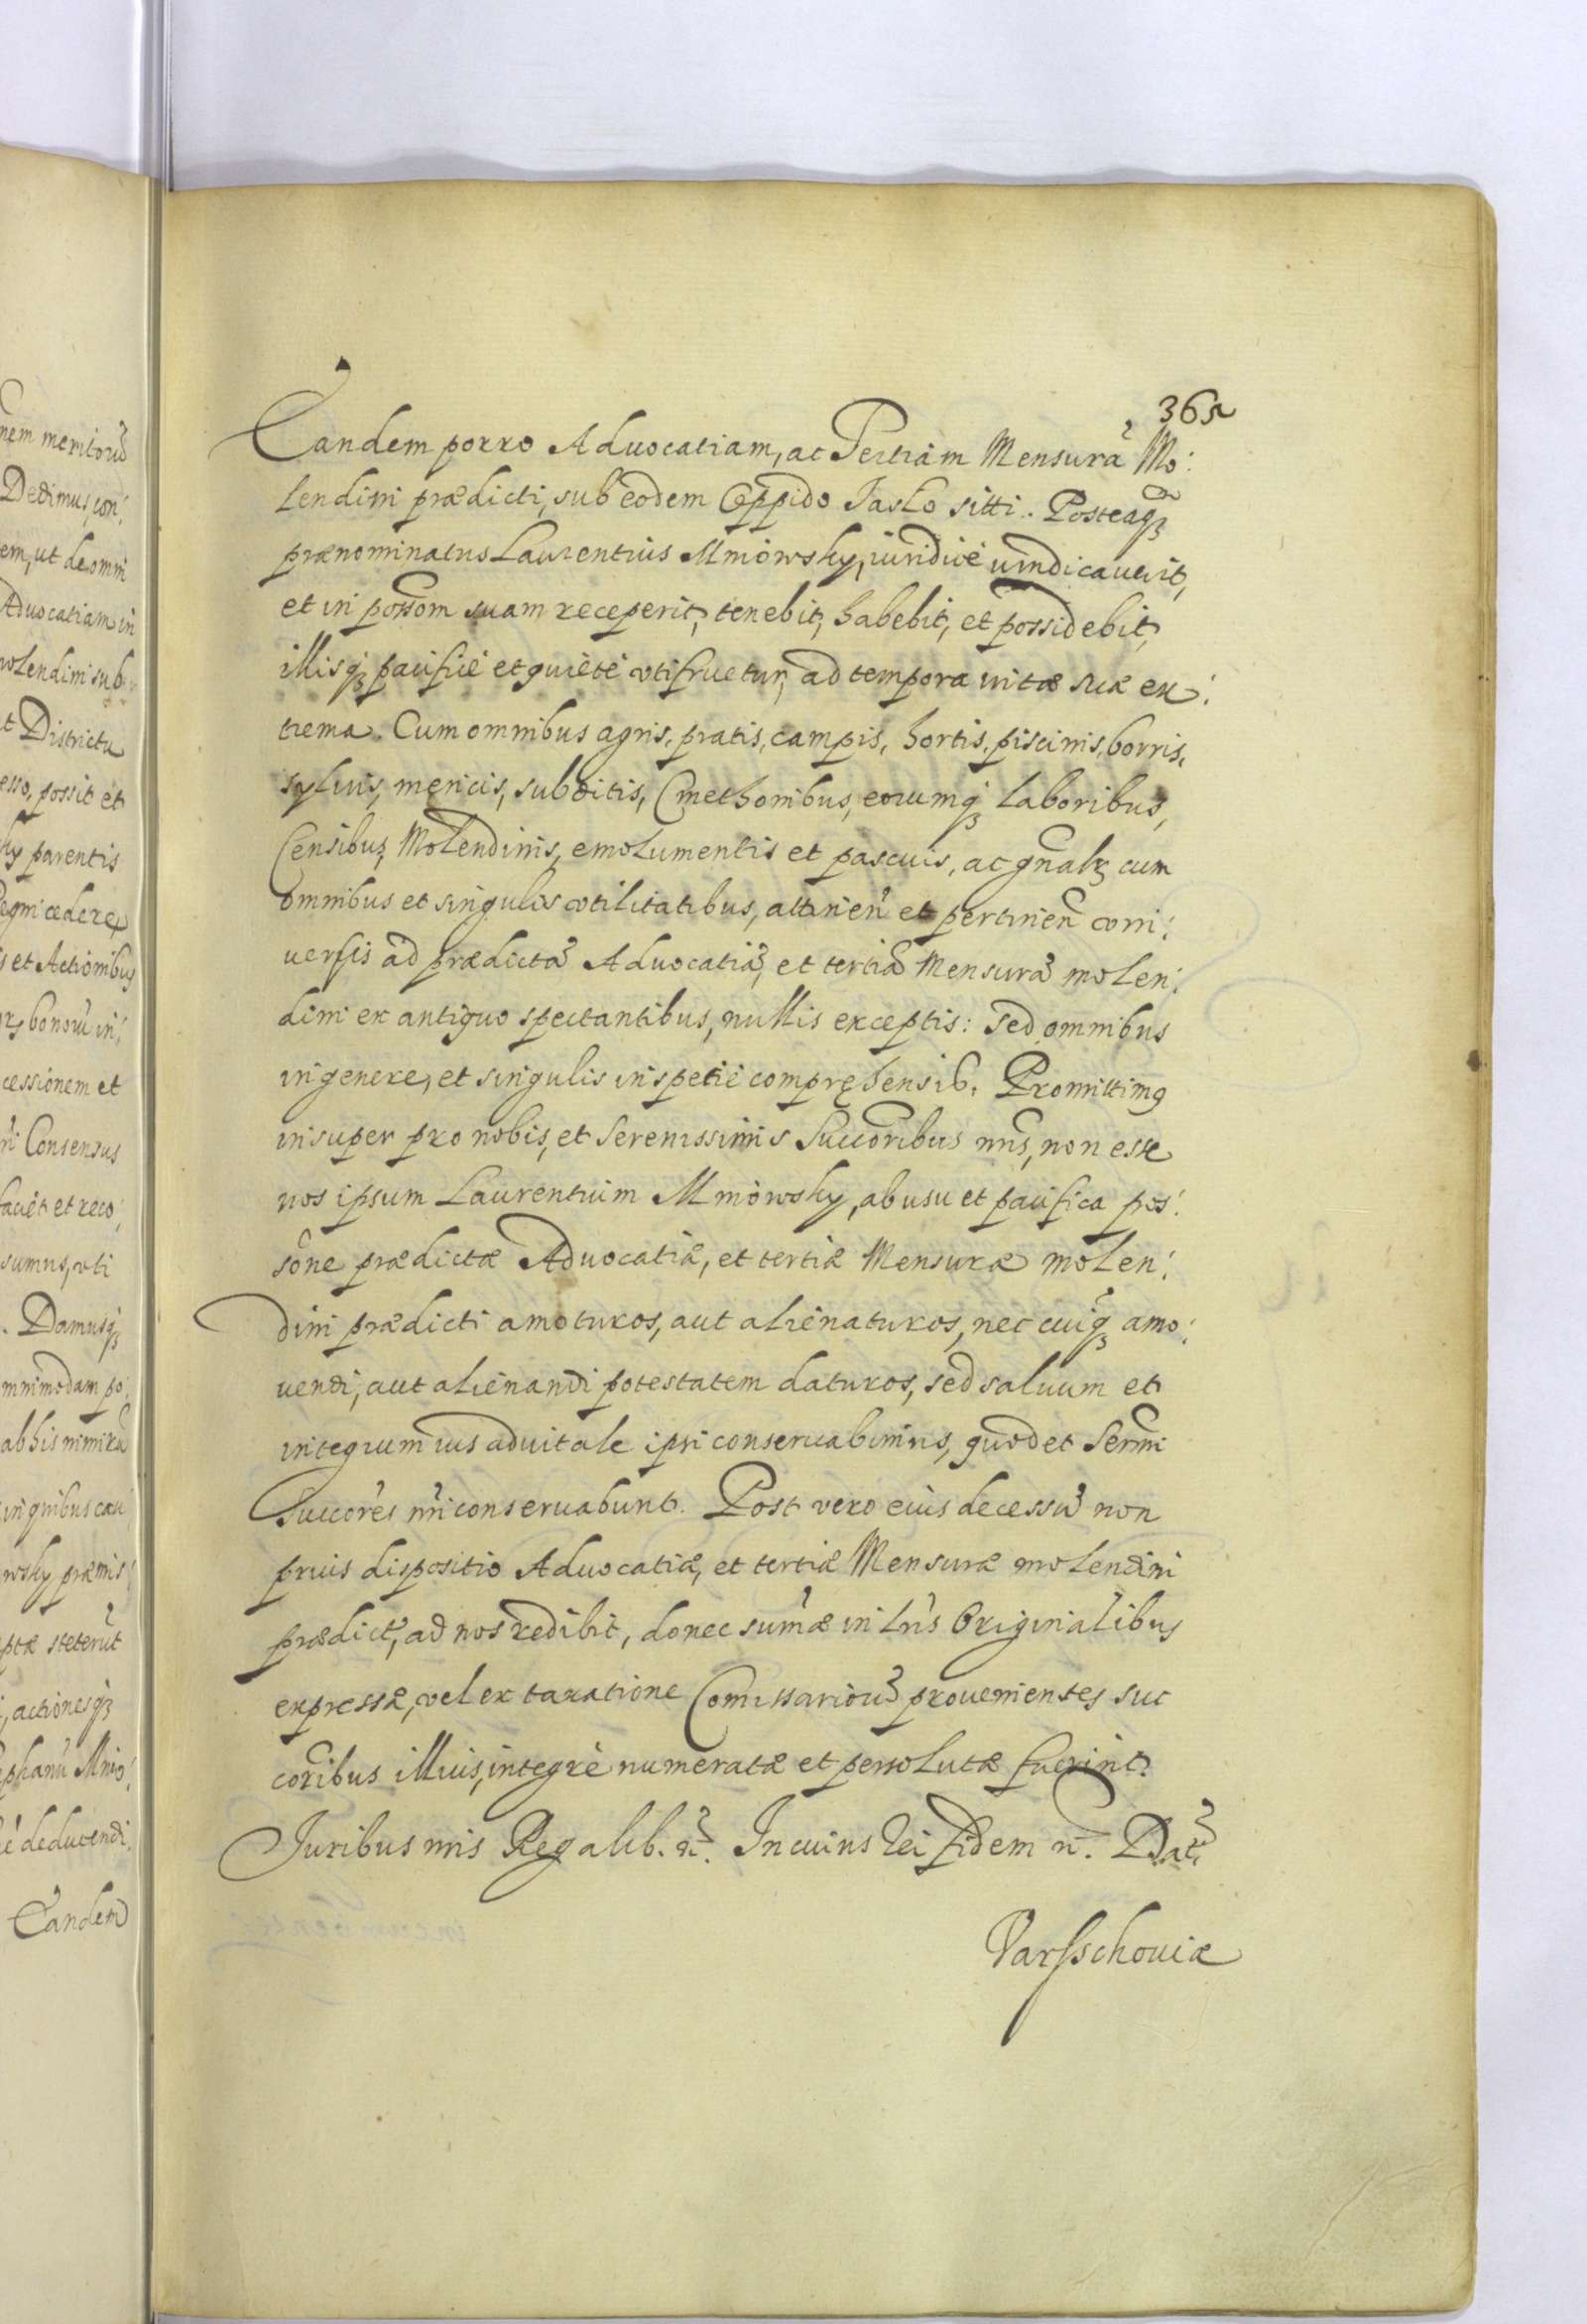 nem meritorũ
Dedimus, con:
em, ut de omni
Advocatiam in
molendini sub
et Districtu
esso, possit et
ky parentis
egni cedere,
s et Actionibus
bonorũ in:
cessionem et
ri Consensus
faciet et reco:
sumus, vti
. Damusq3
mnimodam po:
ab his nimirũ
in quibus cau
wsky præmis:
ptæ steterũt
, actionesq3
phanũ Mnio:
è deducendi.
Eandem
365
Eandem porro Aduocatiam, ac Tertiam Mensurã Mo:
lendini prædicti, sub eodem Oppido Jaslo sitti. Posteaq3
prænominatus Laurentius Mniowsky, iuridicè vindicauerit,
et in possõm suam receperit, tenebit, habebit, et possidebit,
illisq3 pacificè et quietè vtifruetur, ad tempora vitæ suæ ex:
trema. Cum omnibus agris, pratis, campis, hortis, piscinis, borris,
syluis, mericis, subditis, Cmethonibus, eorumq3 laboribus,
Censibus, Molendinis, emolumentis et pascuis, ac gnalr cum
omnibus et singulis vtilitatibus, attineñ et pertineñ vni:
uersis ad prædictã Aduocatiã, et tertiã Mensurã molen:
dini ex antiquo spectantibus, nullis exceptis: sed omnibus
in genere, et singulis in spetie compręhensib. Promittimg
insuper pro nobis, et Serenissimis Succoribus nris, non esse
nos ipsum Laurentium Mniowsky, ab usu et pacifica pos:
sone prædictæ Aduocatiæ, et tertiæ Mensuræ molen:
dini prædicti amoturos, aut alienaturos, nec cuiq3 amo:
uendi, aut alienandi potestatem daturos, sed saluum et
integrum ius aduitale ipsi conseruabimus, quod et Sermi
Succores nri conseruabunt. Post vero eius decessũ non
prius dispositio Aduocatiæ, et tertiæ Mensuræ molendini
prædict, ad nos redibit, donec sumæ in lris Originalibus
expressæ, vel ex taxatione Comissariorũ prouenientes suc
coribus illius, integrè numeratæ et persolutæ fuerint.
Juribus nris Regalib. etc. In cuius rei fidem etc. Dat.
Varsschouiæ